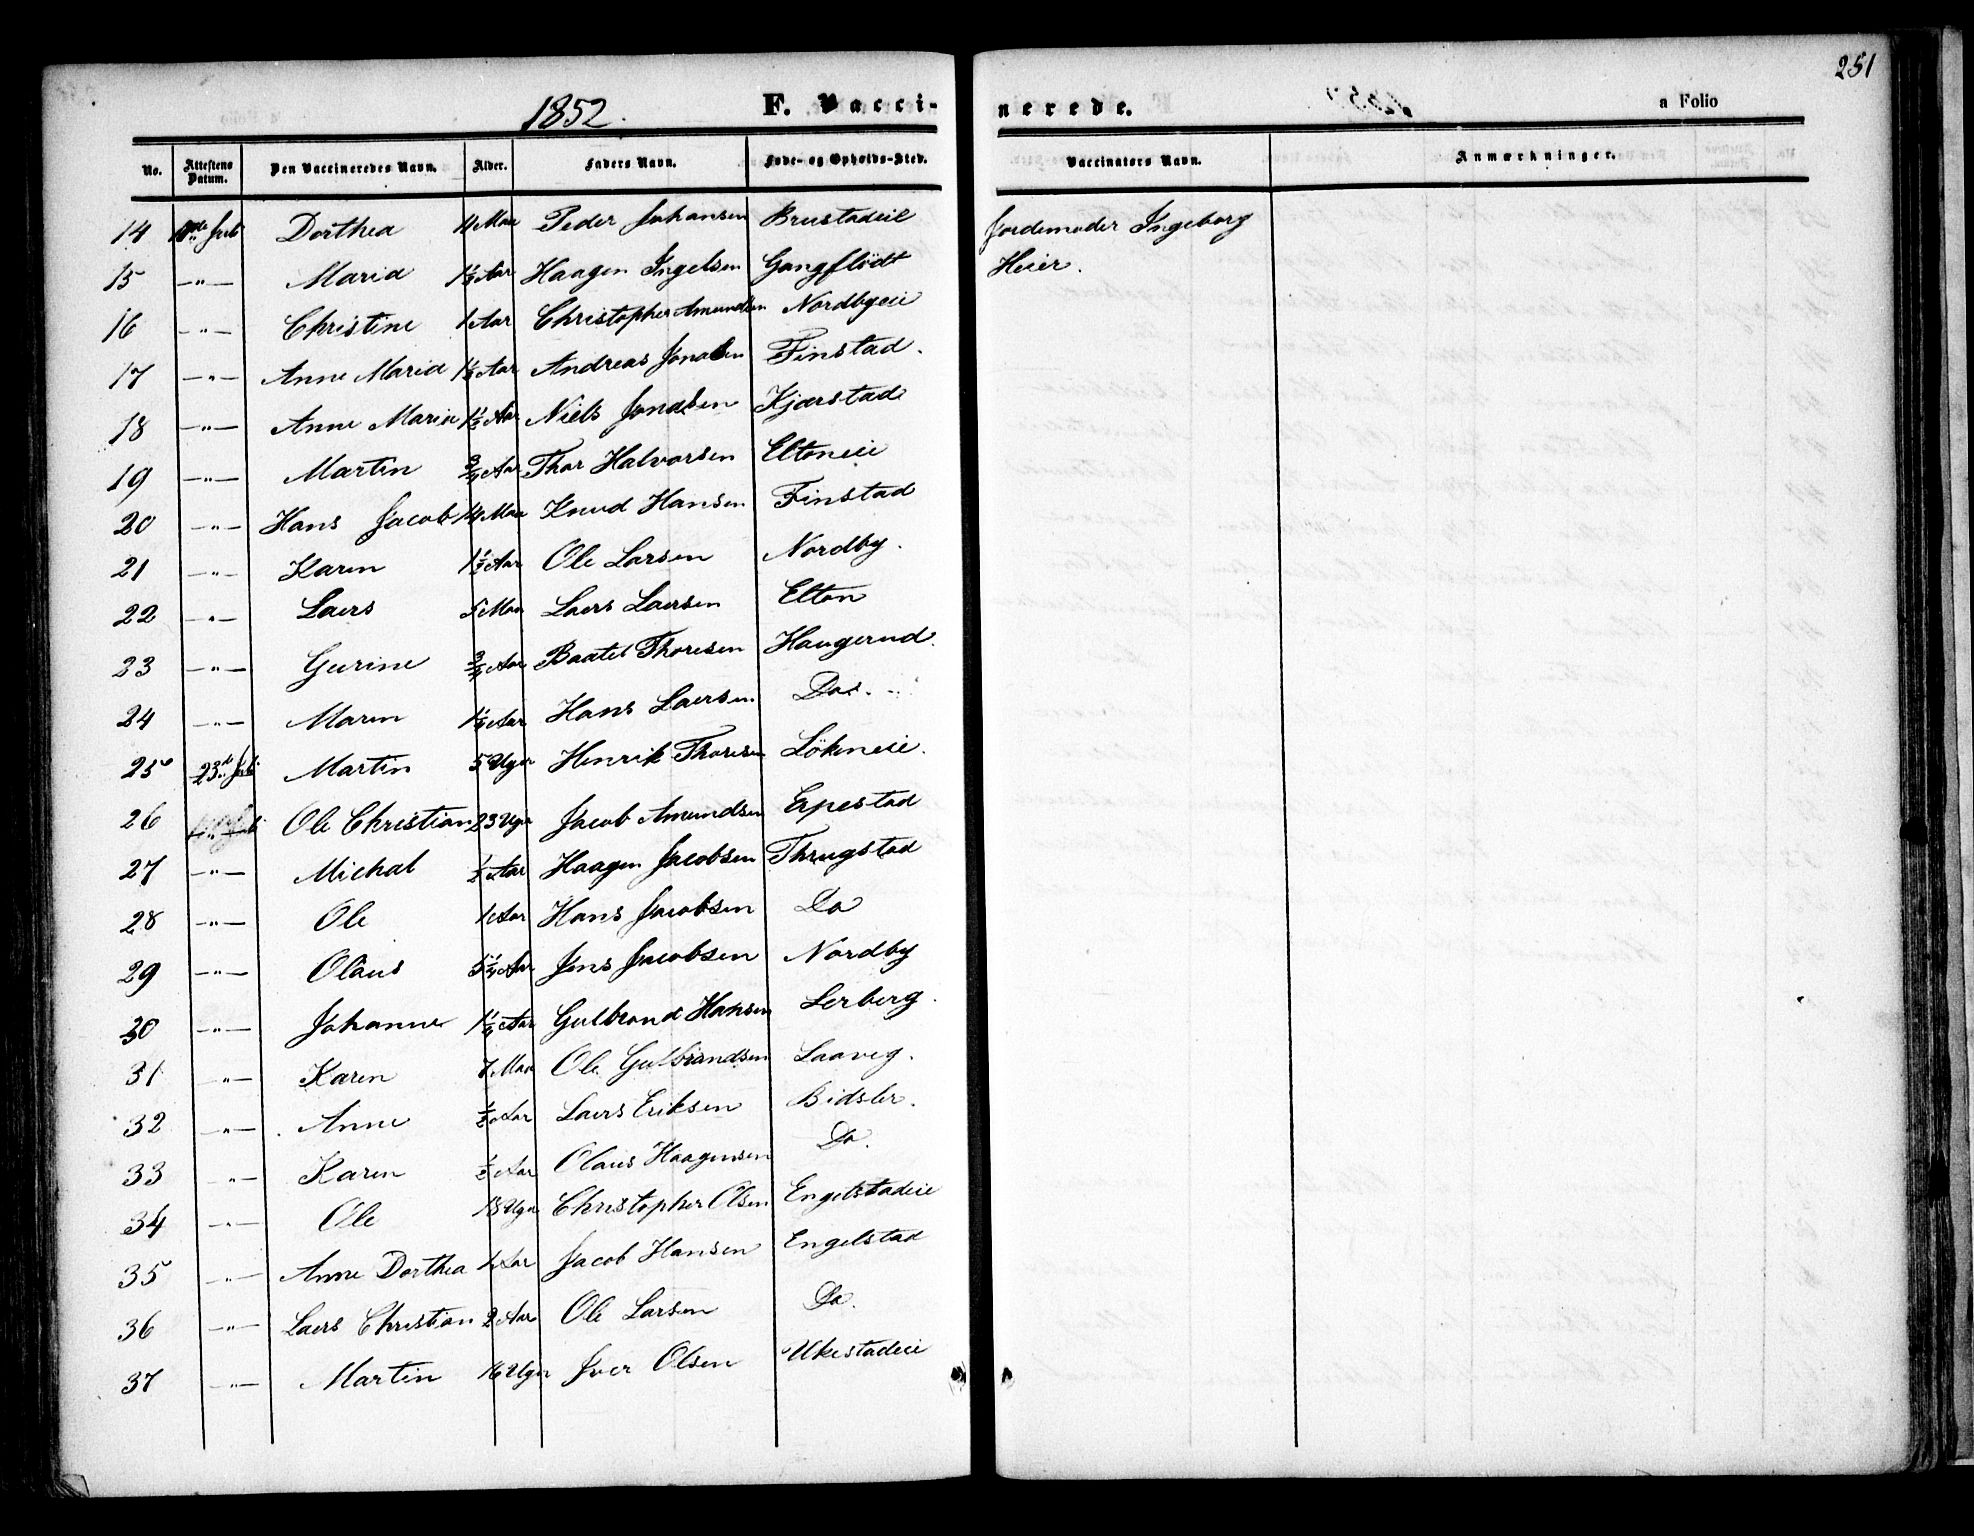 251
1852. F. Vacci-nerede. a Folio
No. Attestens Datum. Den Vaccineredes Navn. Alder. Faders Navn. Føde- og Opholds-Sted. Vaccinators Navn. Anmærkninger.
14 Juli Dorthea 14 Maa Peder Johansen Brustadeie Jordemoder Ingeborg
15 —"— Maria 1½ Aar Haagen Ingelsen Gangflödt Heier.
16 —"— Christine 1 Aar Christopher Amundsen Nordbyeie
17 —"— Anne Maria Aar Andreas Jonassen Finstad.
18 —"— Anne Maria 1½ Aar Niels Jondsen Kjærstad
19 —"— Martin ¾ Aar Thor Halvorsen Eltoneie
20 —"— Hans Jacob 14 Maa Knud Hansen Finstad
21 —"— Karen 1½ Aar Ole Larsen Nordby.
22 —"— Laers 5 Maa Laers Laersen Elton
23 —"— Gurine ¾ Aar Baatel Thoresen Haugerud.
24 —"— Maren Aar Hans Laersen Do.
25 23de Juli Martin 5 Uger Henrik Thoresen Lökeneie.
26 —"— Ole Christian 23 Uger Jacob Amundsen Erpestad
27 —"— Michal ½ Aar Haagen Jacobsen Thrugstad
28 —"— Ole 1 Aar Hans Jacobsen Do
29 —"— Olaus Aar Jens Jacobsen Nordby
30 —"— Johanne Aar Gulbrand Hansen Lerberg.
31 —"— Karen 7 Maa Ole Gulbrandsen Laaveg.
32 —"— Anne ½ Aar Laers Eriksen Bidsler.
33 —"— Karen ½ Aar Olaus Haagensen Do.
34 —"— Ole 18 Uger Christopher Olsen Engelstadeie
35 —"— Anne Dorthea 1 Aar Jacob Hansen Engelstad
36 —"— Laers Christian 2 Aar Ole Larsen Do.
37 —"— Martin 16 Uger Iver Olsen Ukestadeie